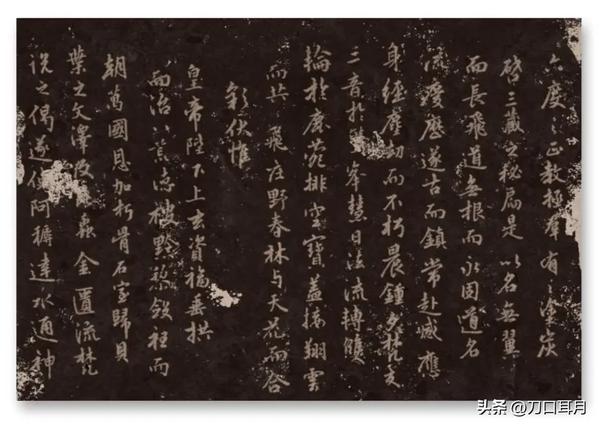 六度之正教拯羣有之塗炭
啓三藏之秘扃是以名無翼
而長飛道無根而永固道名
流慶歷遂古而鎮常赴感應
身經塵劫而不朽晨鍾夕梵交
二音於峯慧日法流轉雙
輪於鹿菀排空寶蓋接翔雲
而共飛庄野春林与天花而合
彩伏惟
皇帝陛下上玄資福垂拱
而治八荒德被黔黎斂衽而
朝萬國恩加朽骨石室歸貝
葉之文澤及虫金匱流梵
說之偈遂使阿耨達水通神
头条 @刀口耳月